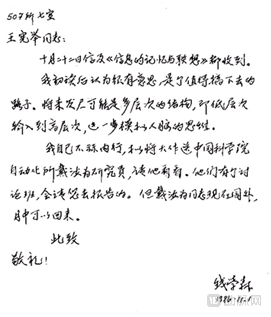 507所七室
王宪举同志：
十月二十二日信及《信息的记忆与联想》都收到。
我初读后认为很有意思，是个值得搞下去的
路子。将来发展可能是多层次的结构，即低层次
输入到高层次，进一步模拟人脑的思维。
我自己不算内行，拟将大作送中国科学院
自动化所戴汝为研究员，请他看看。他们有个讨
论班，会请您去报告的。但戴汝为同志现在国外，
月中可以回来。
此致
敬礼！
钱学森
1986.11.1